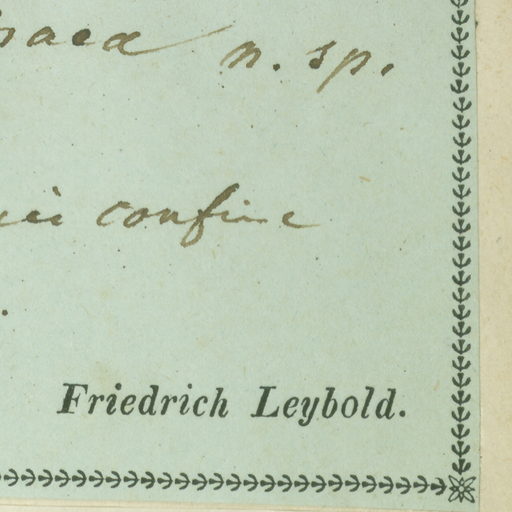 n. sp.
confine
Friedrich Leybold.